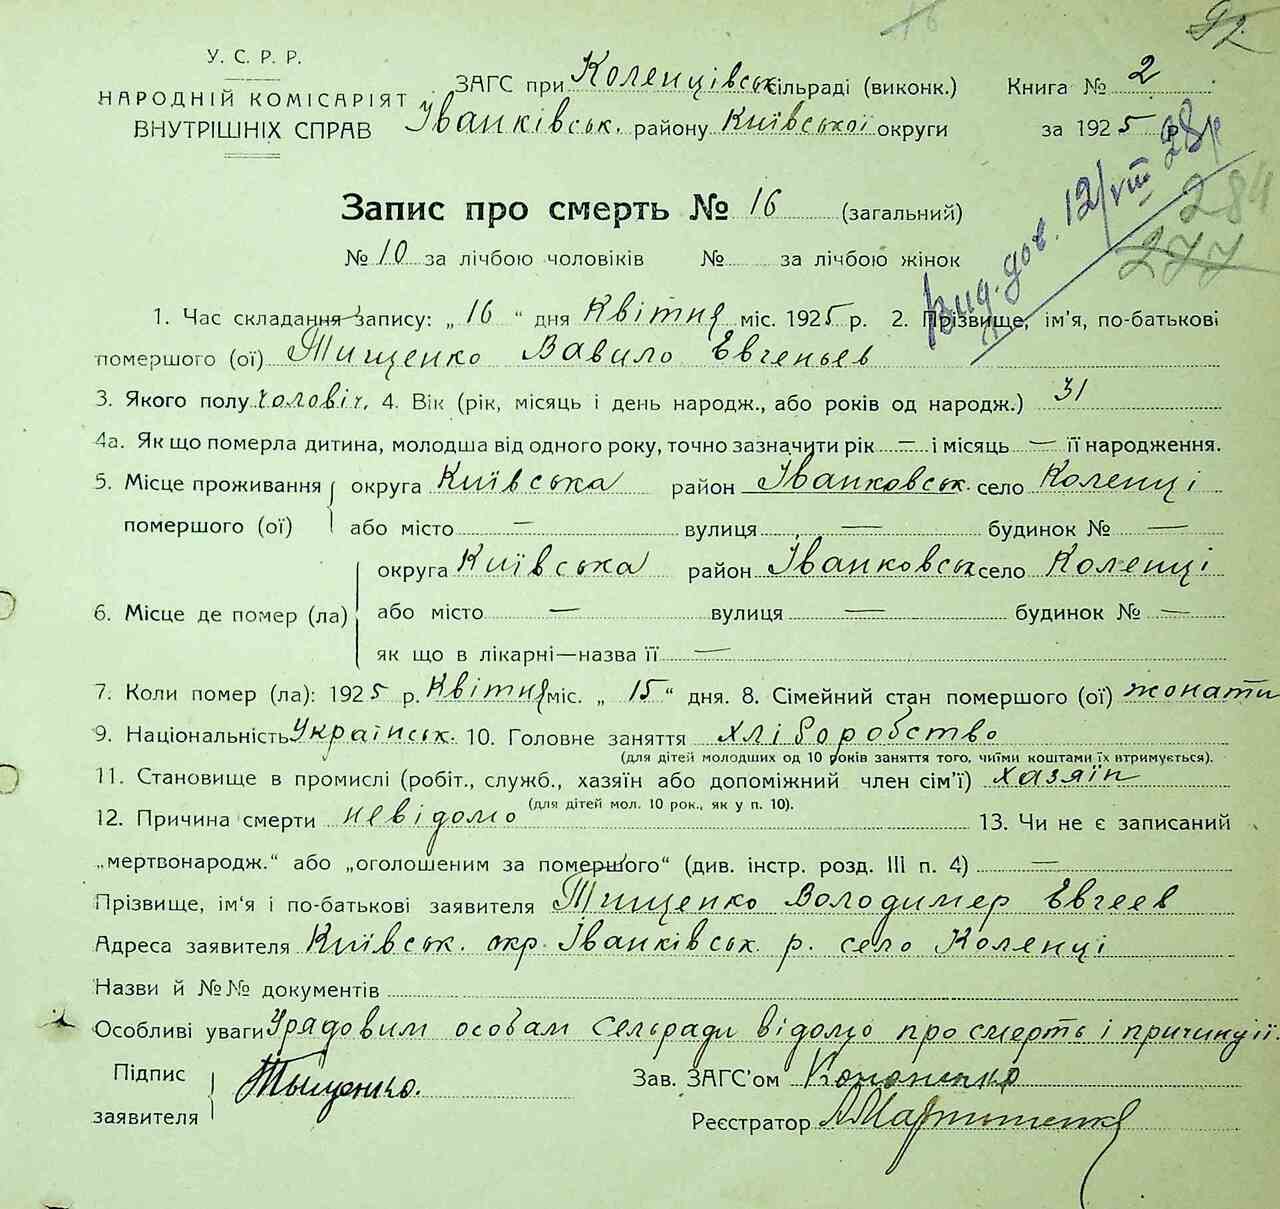 У. С. Р. Р.
НАРОДНІЙ КОМІСАРІЯТ
ВНУТРІШНІХ СПРАВ
ЗАГС при Коленцівськ сільраді (виконк.) Книга № 2
Іванківськ. району Київської округи за 1925 р.
Вид. дов. 12/VIII 28р
284
277
Запис про смерть № 16 (загальний)
№ 10 за лічбою чоловіків № за лічбою жінок
1. Час складання запису: „ 16 “ дня Квітня міс. 1925 р. 2. Прізвище, ім'я, по-батькові
помершого (ої) Тищенко Вавило Евгеньев
3. Якого полу чоловіч. 4. Вік (рік, місяць і день народж., або років од народж.) 31
4а. Як що померла дитина, молодша від одного року, точно зазначити рік — і місяць — її народження.
5. Місце проживання помершого (ої) округа Київська район Іванковськ. село Коленці
або місто — вулиця — будинок № —
6. Місце де помер (ла) округа Київська район Іванковськ село Коленці
або місто — вулиця — будинок № —
як що в лікарні—назва її —
7. Коли помер (ла): 1925 р. Квітня міс. „ 15 “ дня. 8. Сімейний стан помершого (ої) жонати
9. Національність Українськ. 10. Головне заняття хліборобство
(для дітей молодших од 10 років заняття того, чиїми коштами їх втримується).
11. Становище в промислі (робіт., служб., хазяїн або допоміжний член сім'ї) хазяін
(для дітей мол. 10 рок., як у п. 10).
12. Причина смерти невідомо 13. Чи не є записаний
„мертвонародж.“ або „оголошеним за помершого“ (див. інстр. розд. III п. 4) —
Прізвище, ім'я і по-батькові заявителя Тищенко Володимер Евгеев
Адреса заявителя Київськ. окр. Іванківськ р. село Коленці
Назви й №№ документів
Особливі уваги Урядовим особам сельради відомо про смерть і причину її.
Підпис заявителя Тыщенко. Зав. ЗАГС'ом Кононенко
Реєстратор